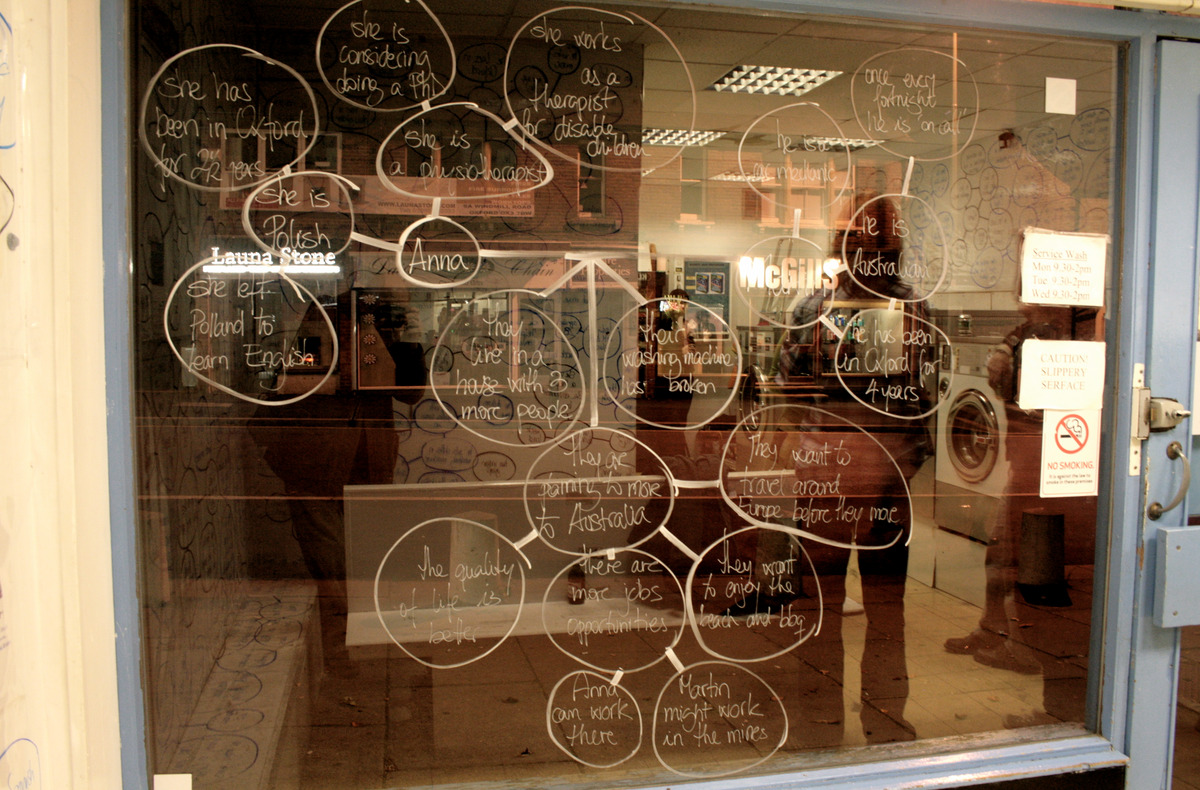 she is
considering
doing a Phd
she works
as a
therapist
for disable
children
she has
been in Oxford
for 2½ years
she is
a physiotherapist
she is
Polish
Anna
Launa Stone
she left
Polland to
learn English
once every
fortnight
he is on call
he is a
car mechanic
he is
Australian
McGills
he has been
in Oxford for
4 years
They
live in a
house with 3
more people
their
washing machine
has broken
They are
planning to move
to Australia
They want to
travel around
Europe before they move
the quality
of life is
better
there are
more jobs
opportunities
They want
to enjoy the
beach and bbq
Anna
can work
there
Martin
might work
in the mines
Service Wash
Mon 9.30-2pm
Tue 9.30-2pm
Wed 9.30-2pm
CAUTION!
SLIPPERY
SERFACE
NO SMOKING.
It is against the law to
smoke in these premises